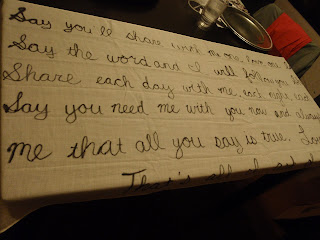 Say you'll share with me one love me
Say the word and I will follow you
Share each day with me, each night, each
Say you need me with you now and always
me that all you say is true. Love
That's all I ask